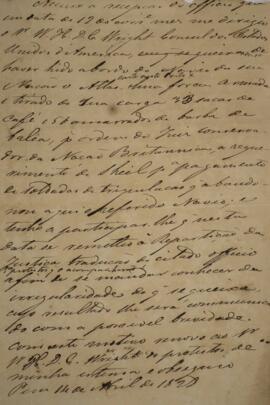 Accuso a recepção do officio que
em data de 12 do corre. mez me dirigio
o Sr. W. H. D. C. Wright Consul dos Estados
Unidos da America, em que
haver hido a bordo do
Navio o Atlas
e tirado da sua carga 33 sacas de
Café e 51 amarrados de barba de
balea, pr. ordem do Juiz conserva-
dor da Nação Britannica, a reque-
rimento de pa. pagamento
de soldadas da tripulação q abando-
nou a qui o referido Navio; e
tenho a participar lhe q nesta
data se remetteo á Repartição da
Justiça traducção do citado officio
afim de se mandar conhecer da
irregularidade de q se queixa,
cujo resultado lhe será communica
do com a possivel brevidade.
Com este motivo renovo ao Sr.
W. H. D. C. Wright os protestos de
minha estima e obsequio
Paço 14 de Abril de 18